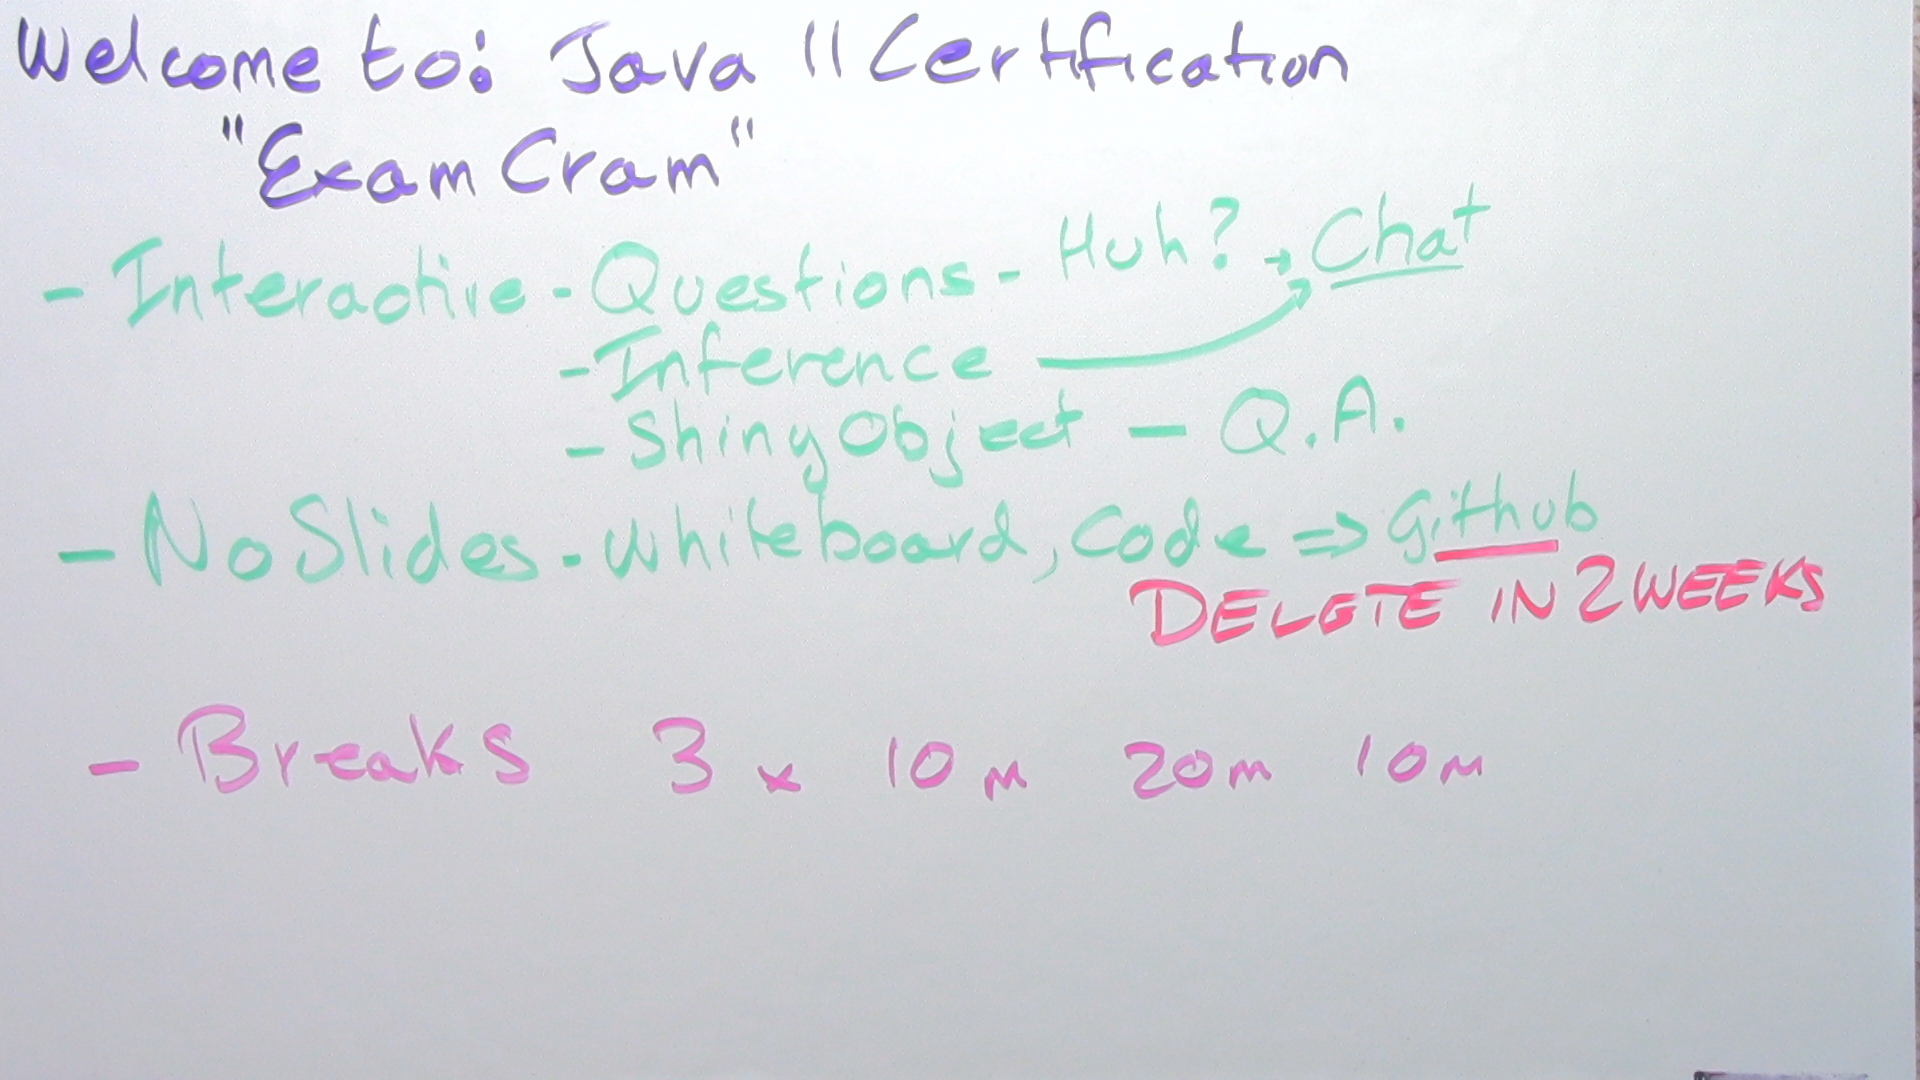 Welcome to: Java 11 Certification
"Exam Cram"
- Interactive - Questions - Huh? → Chat
- Inference
- Shiny Object - Q.A.
- No Slides - whiteboard, Code ⇒ Github
DELETE IN 2 WEEKS
- Breaks 3 x 10m 20m 10m